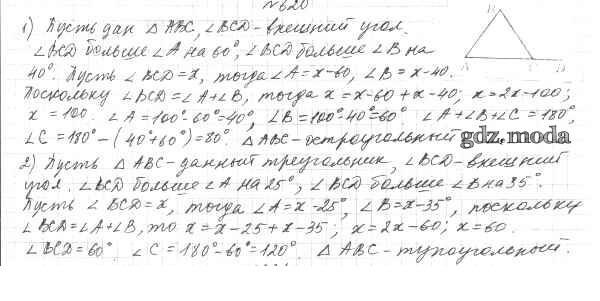 №620
1) Пусть дан △ABC, ∠BCD - внешний угол.
∠BCD больше ∠A на 60°, ∠BCD больше ∠B на
40°. Пусть ∠BCD = x, тогда ∠A = x-60, ∠B = x-40.
Поскольку ∠BCD = ∠A+∠B, тогда x = x-60 + x-40; x = 2x-100;
x = 100. ∠A = 100°-60°=40°, ∠B = 100°-40°=60°. ∠A+∠B+∠C = 180°,
∠C = 180° - (40°+60°)=80°. △ABC - остроугольный
gdz.moda
2) Пусть △ABC - данный треугольник, ∠BCD - внешний
угол. ∠BCD больше ∠A на 25°, ∠BCD больше ∠B на 35°.
Пусть ∠BCD = x, тогда ∠A = x-25°, ∠B = x-35°, поскольку
∠BCD = ∠A+∠B, то x = x-25 + x-35; x = 2x-60; x = 60.
∠BCD = 60° ∠C = 180°-60°=120°. △ABC - тупоугольный.
B
A C D